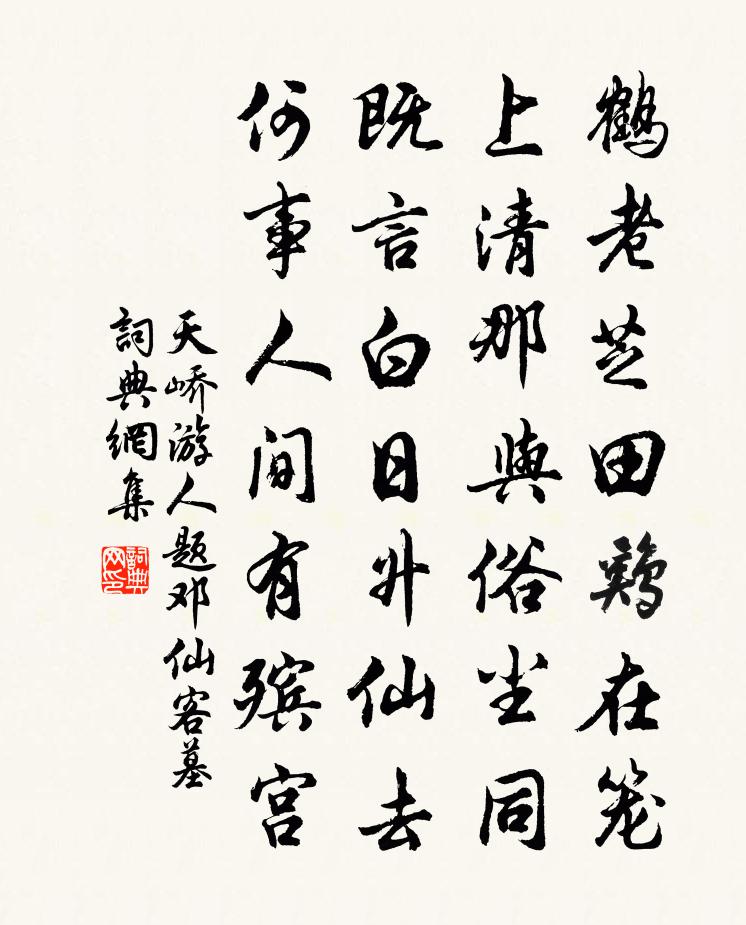 鹤老芝田鷄在笼
上清那與俗尘同
既言白日升仙去
何事人间有殡宫
天峤游人题邓仙客墓
詞典網集
詞典网印